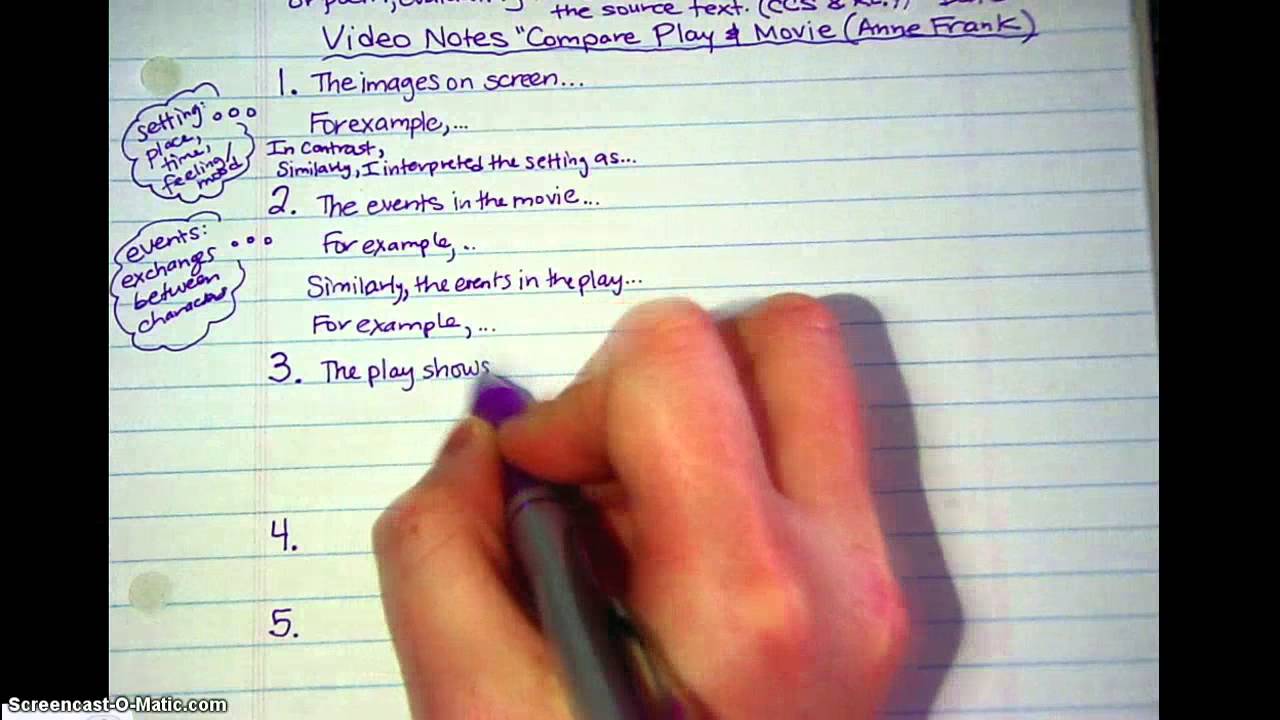 the source text. (CCS 8
Video Notes "Compare Play & Movie (Anne Frank)
1. The images on screen...
For example,...
In Contrast,
Similarly, I interpreted the setting as...
setting:
place,
time,
feeling/
mood
2. The events in the movie...
For example,..
Similarly, the events in the play...
For example,...
events:
exchanges
between
characters
3. The play shows
4.
5.
Screencast-O-Matic.com